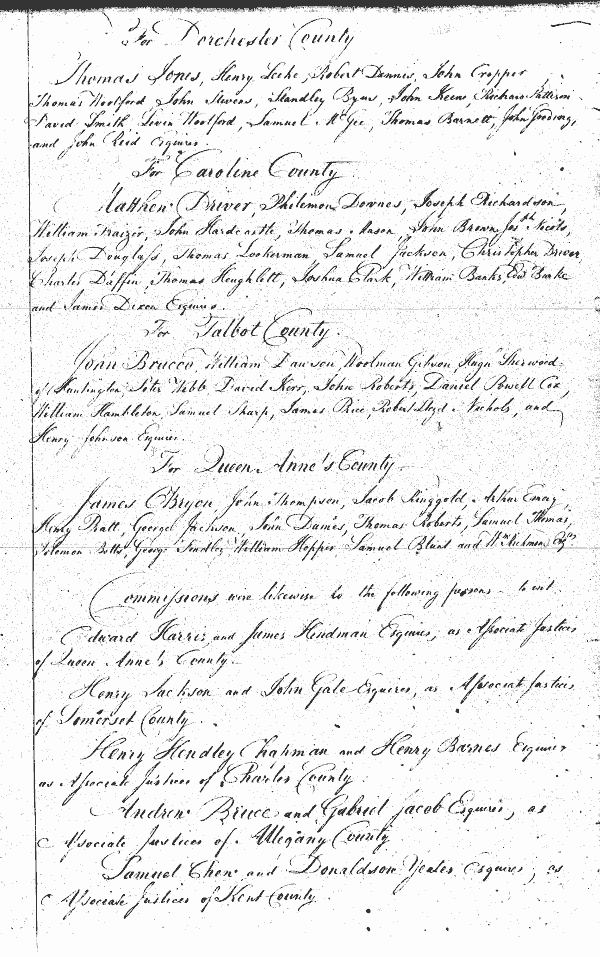 For Dorchester County
Thomas Jones, Henry Leeke, Robert Dennis, John Cropper,
Thomas Woolford John Stevens, Standley Byus, John Keene, Richard Pattison
David Smith Levin Woolford, Samuel McGee, Thomas Barnett, John Goodwag,
and John Reid Esquires.
For Caroline County
Matthew Driver, Philemon Downes, Joseph Richardson,
William Frazier, John Hardcastle, Thomas Mason, John Brown, Josph Nicols,
Joseph Douglass, Thomas Lookerman, Samuel Jackson, Christopher Driver
Charles Daffin, Thomas Houghlett, Joshua Clark, William Banks,
and James Dixon Esquires.
For Talbot County.
John Bracco William Dawson Woolman Gibson, Hugh Sherwood
of Huntington Peter Webb David Kerr, John Roberts, Daniel Powell Cox,
William Hambleton, Samuel Sharp, James Price, Robert Lloyd Nichols, and
Henry Johnson Esquires.
For Queen Anne's County
James OBryon, John Thompson, Jacob Ringgold, Arthur Emory,
Henry Pratt, George Jackson, John Dames, Thomas Roberts, Samuel Thomas,
Solomon Betts, George Findley William Hopper Samuel Blunt and Wm Richmond Esqrs
Commissions were likewise to the following persons to wit
Edward Harris and James Hindman Esquires, as Associate Justices
of Queen Anne's County.
Henry Jackson and John Gale Esquires, as Associate Justices
of Somerset County
Henry Hendley Chapman and Henry Barnes Esquires
as Associate Justices of Charles County
Andrew Bruce and Gabriel Jacob Esquires, as
Associate Justices of Allegany County
Samuel Chew and Donaldson Yeates Esquires, as
Associate Justices of Kent County